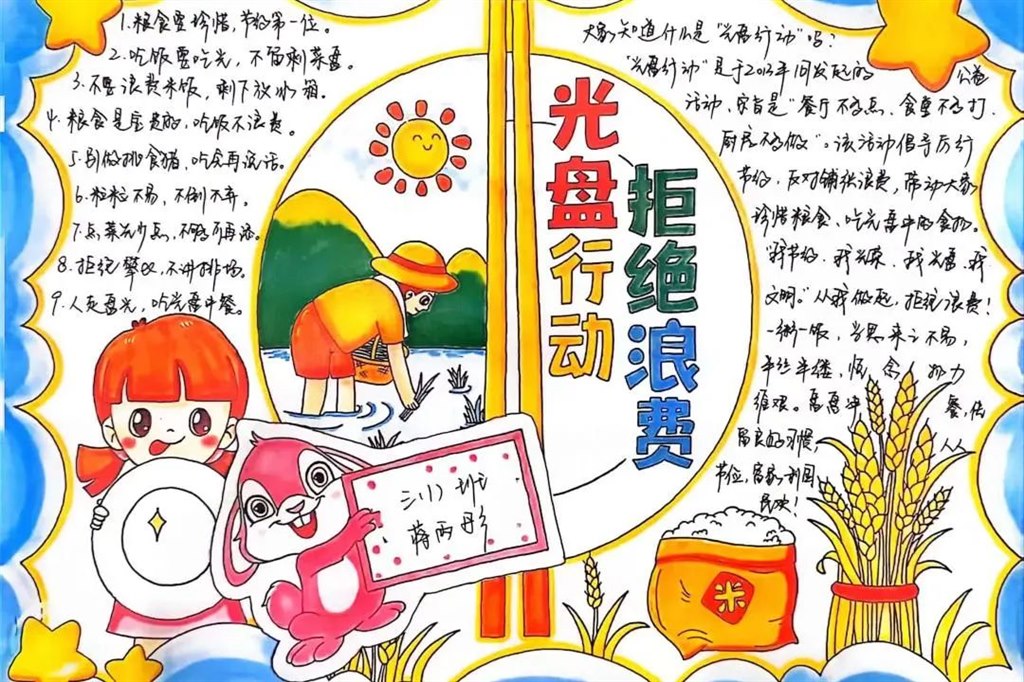 1.粮食要珍惜,节约第一位。
2.吃饭要吃光,不留剩菜羹。
3.不要浪费米饭,剩下放冰箱。
4.粮食是宝贵的,吃饭不浪费。
5.别做挑食猪,吃完再说话。
6.粒粒不易,不剩不弃。
7.点菜少点,不够再添。
8.拒绝攀比,不讲排场。
9.人走盘光,吃光盘中餐。
光盘行动
拒绝浪费
大家知道什么是“光盘行动”吗?
“光盘行动”是于2013年1月发起的公益
活动,宗旨是“餐厅不多点、食堂不多打、
厨房不多做”。该活动倡导厉行
节约,反对铺张浪费,带动大家
珍惜粮食、吃光盘中的食物。
“我节约、我光荣、我光盘、我
文明。”从我做起,拒绝浪费!
一粥一饭,当思来之不易,
半丝半缕,恒念物力
维艰。
留良好习惯,
节位,富家利国
民欢!
三(1)班
蒋雨彤
米